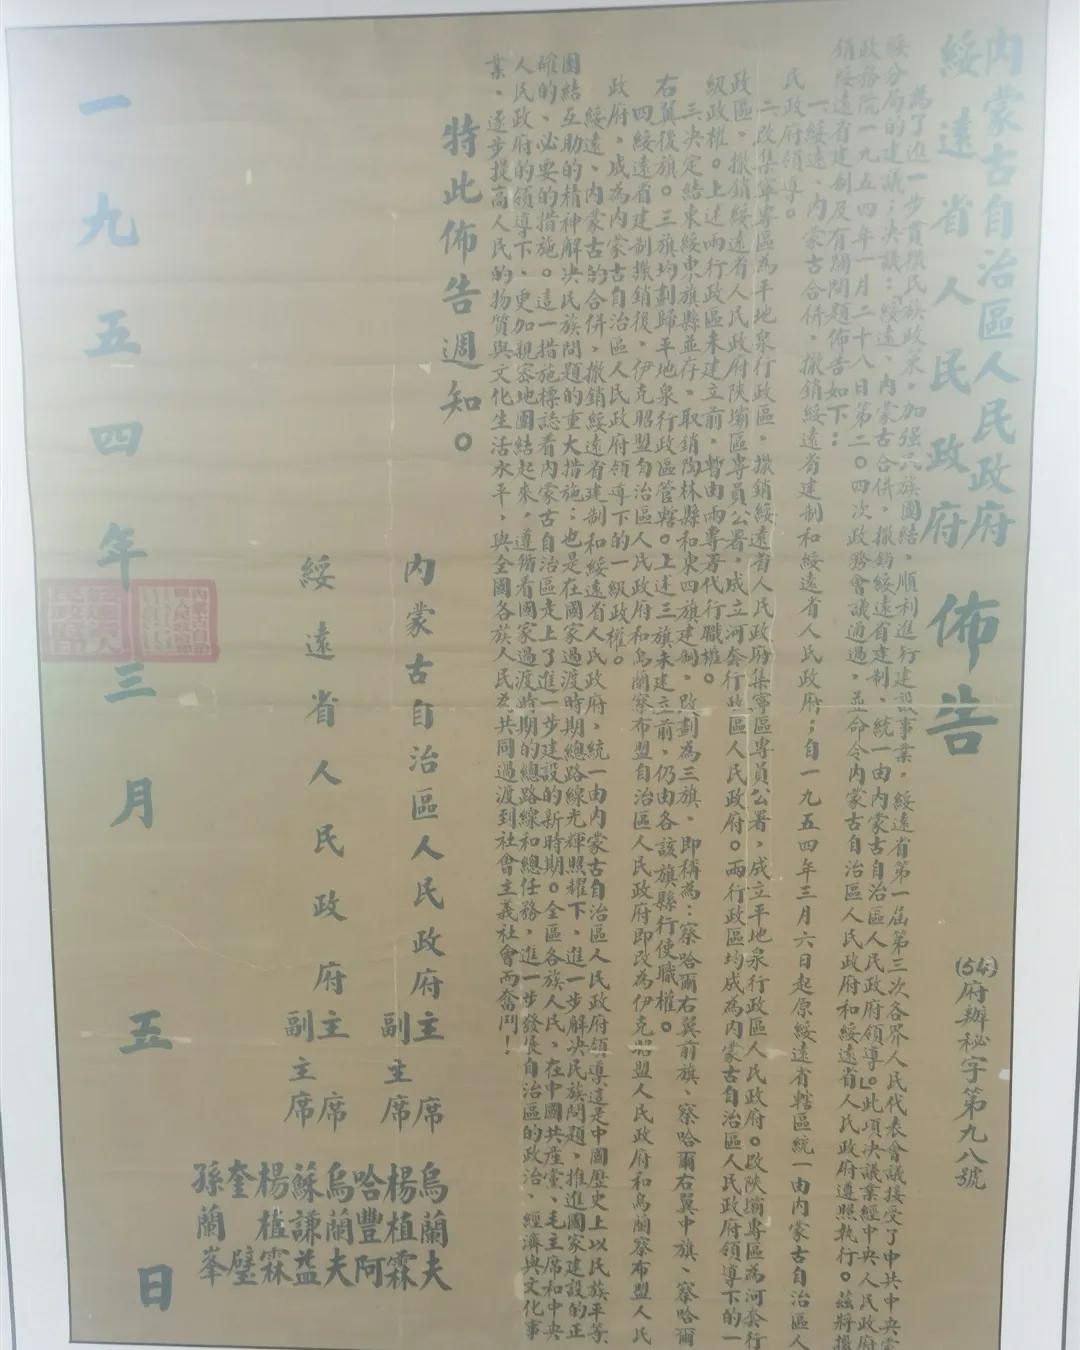 內蒙古自治區人民政府
綏遠省人民政府
佈告
(54)府辦秘字第九八號
為了進一步貫徹民族政策，加强民族團結，順利進行建設事業，綏遠省第一屆第三次各界人民代表會議接受了中共中央蒙
綏分局的建議；決議：「綏遠、內蒙古合併，撤銷綏遠省建制，統一由內蒙古自治區人民政府領導」。此項決議業經中央人民政府
政務院一九五四年一月二十八日第二〇四次政務會議通過，並命令內蒙古自治區人民政府和綏遠省人民政府遵照執行。茲將撤
銷綏遠省建制及有關問題佈告如下：
一、綏遠、內蒙古合併，撤銷綏遠省建制和綏遠省人民政府；自一九五四年三月六日起原綏遠省轄區統一由內蒙古自治區人
民政府領導。
二、改集寧專區為平地泉行政區，撤銷綏遠省人民政府集寧區專員公署，成立平地泉行政區人民政府。改陝壩專區為河套行
政區，撤銷綏遠省人民政府陝壩區專員公署，成立河套行政區人民政府。兩行政區均成為內蒙古自治區人民政府領導下的一
級政權。上述兩行政區未建立前，暫由兩專署代行職權。
三、決定結束綏東旗縣並存，取銷陶林縣和東四旗建制，改劃為三旗，即稱為：察哈爾右翼前旗、察哈爾右翼中旗、察哈爾
右翼後旗。三旗均劃歸平地泉行政區管轄。上述三旗未建立前，仍由各該旗縣行使職權。
四、綏遠省建制撤銷後，伊克昭盟自治區人民政府和烏蘭察布盟自治區人民政府即改為伊克昭盟人民政府和烏蘭察布盟人民
政府，成為內蒙古自治區人民政府領導下的一級政權。
綏遠、內蒙古的合併，撤銷綏遠省建制和綏遠省人民政府，統一由內蒙古自治區人民政府領導這是中國歷史上以民族平等、
團結互助的精神解決民族問題的重大措施；也是在國家過渡時期總路線光輝照耀下，進一步解決民族問題，推進國家建設的正
確的、必要的措施。這一措施標誌着內蒙古自治區走上了進一步建設的新時期。全區各族人民，在中國共產黨、毛主席和中央
人民政府的領導下，更加親密地團結起來，遵循着國家過渡時期的總路線和總任務，進一步發展自治區的政治、經濟與文化事
業，逐步提高人民的物質與文化生活水平，與全國各族人民為共同過渡到社會主義社會而奮鬥！
特此佈告週知。
內蒙古自治區人民政府主席 烏蘭夫
副主席 楊植霖
哈豐阿
綏遠省人民政府主席 烏蘭夫
副主席 蘇謙益
楊植霖
奎璧
孫蘭峯
一九五四年三月五日